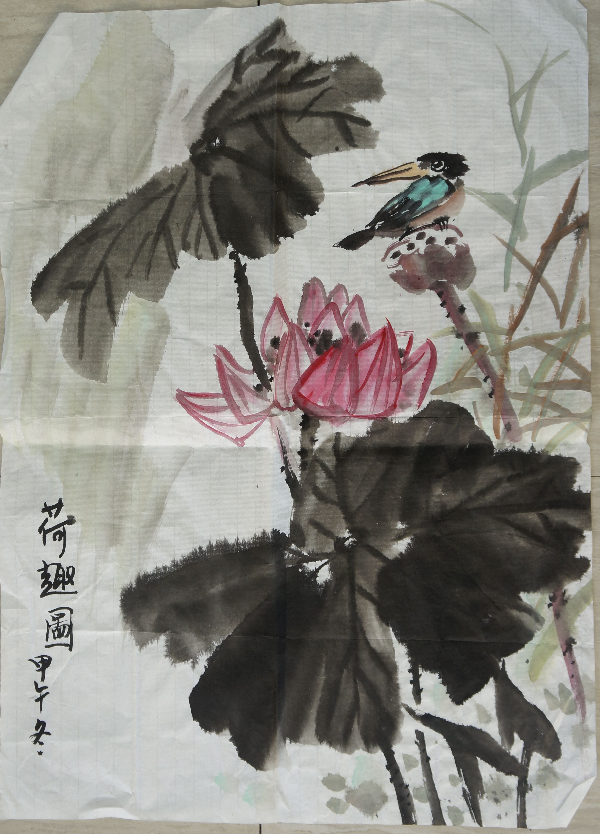 荷趣圖
甲午冬